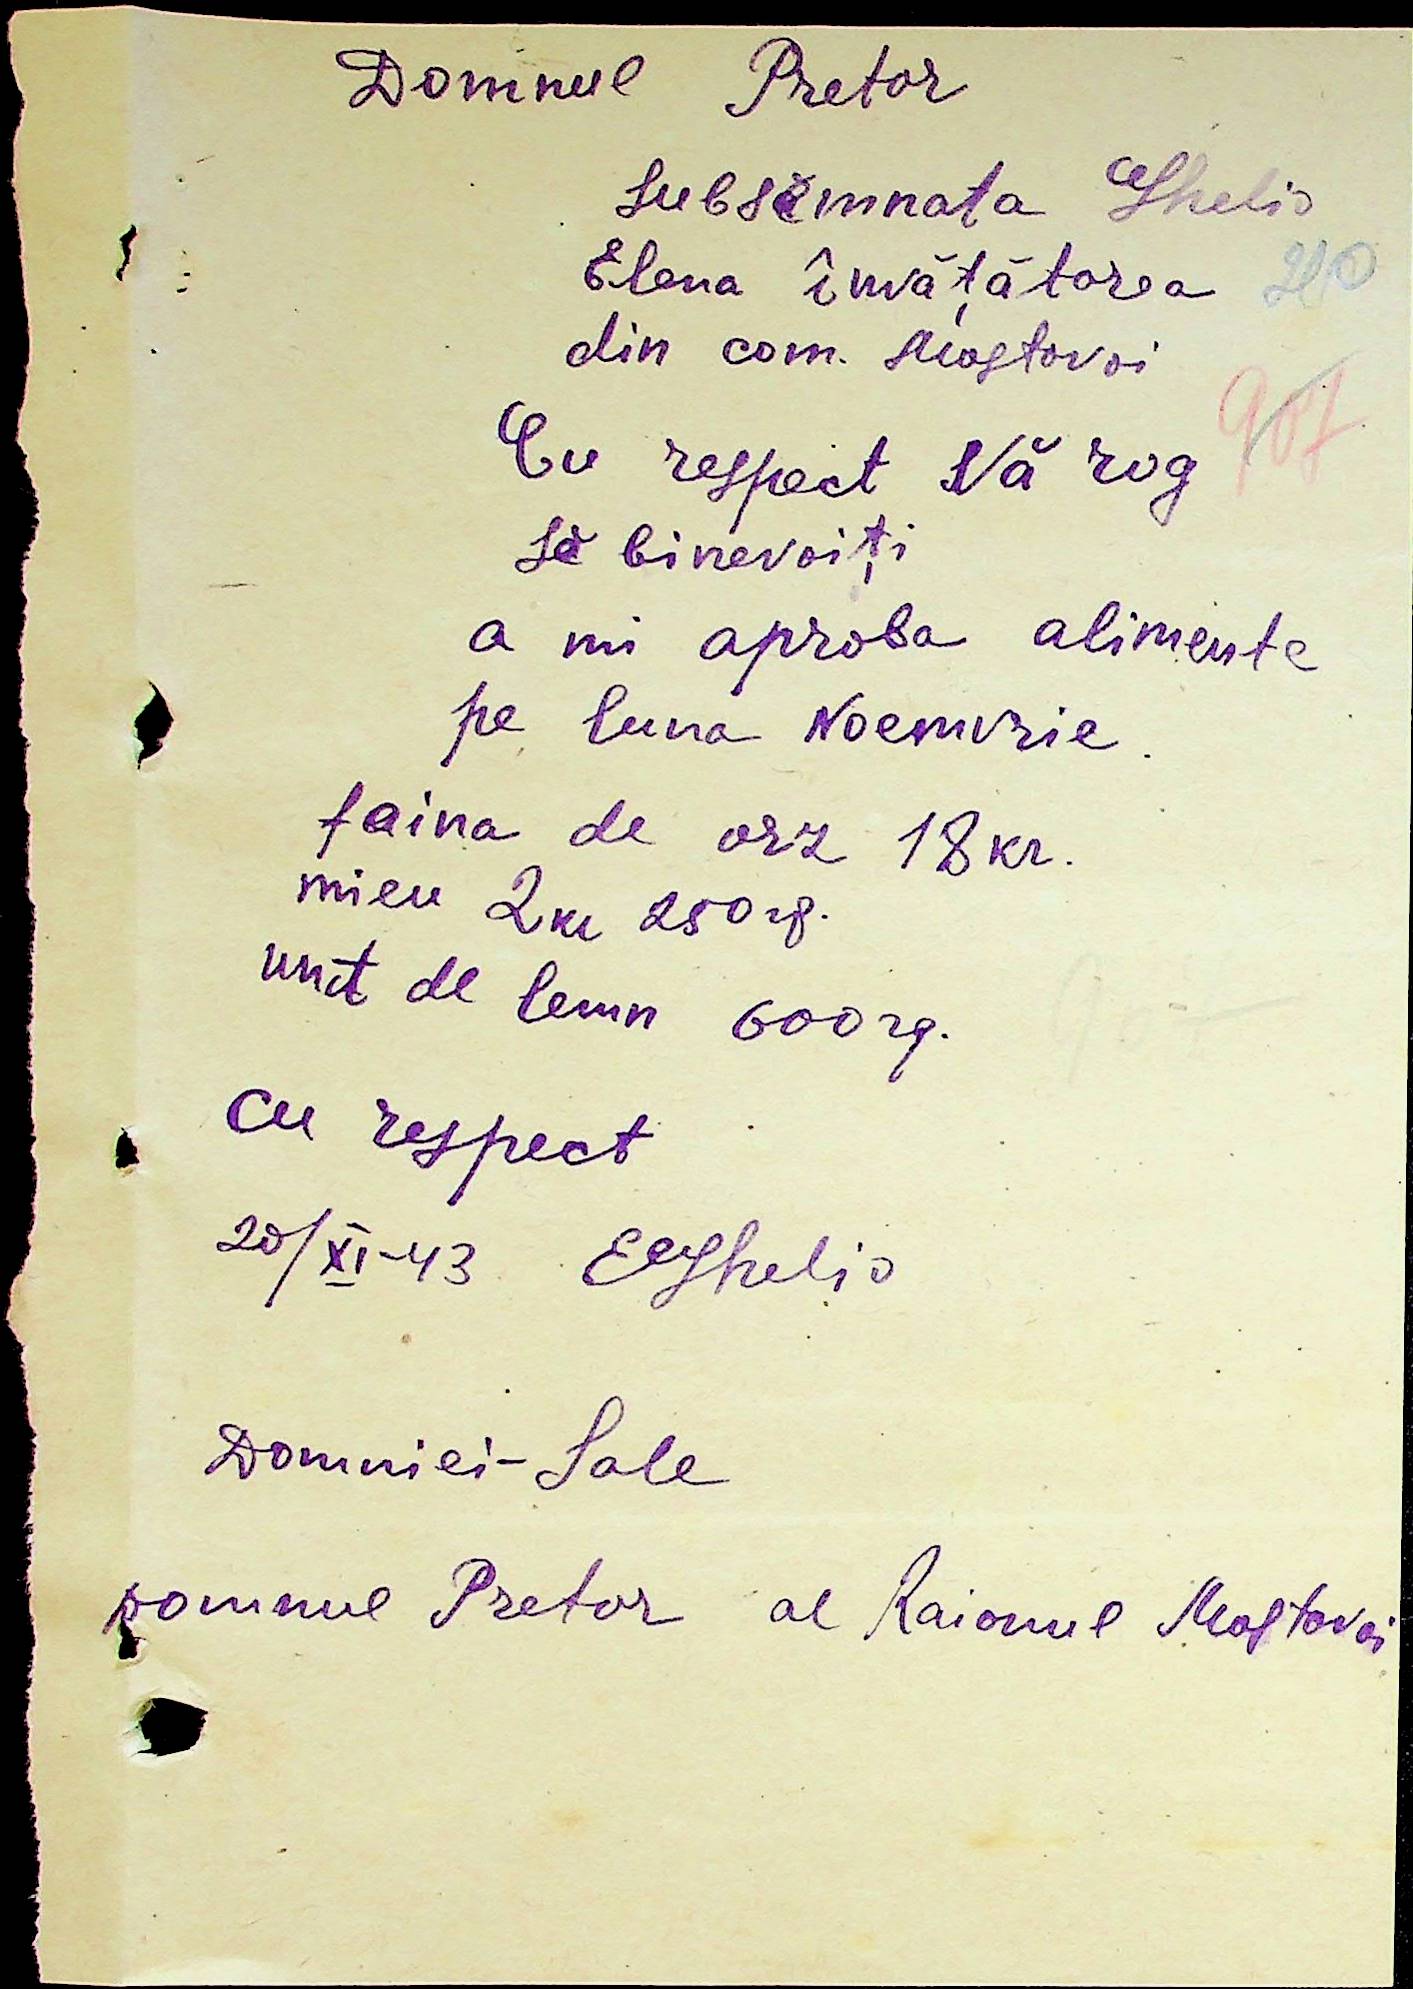 Domnul Pretor
Subsemnata Ghelis
Elena învățătorea
din com. Mostovoi
Cu respect Vă rog
să binevoiți
a mi aproba alimente
pe luna Noemvrie.
faina de orz 18 kr.
mieu 2 kr 250 rg.
unt de lemn 600 rg.
cu respect
20/XI-43 EGhelis
Domniei-Sale
Domnul Pretor al Raionul Mostovoi